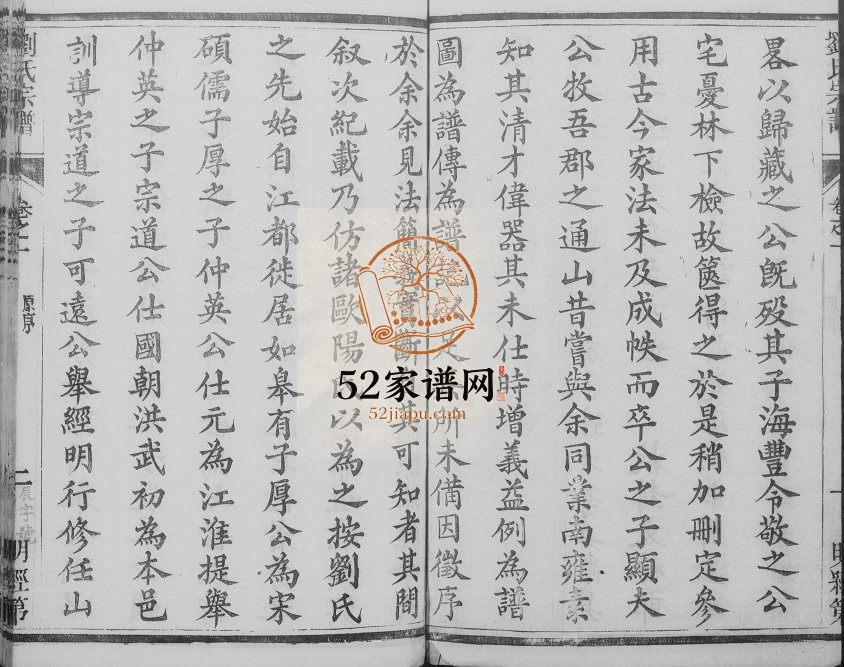 劉氏宗譜
卷之一
一
明經第
畧以歸藏之公旣歿其子海豐令敬之公
宅憂林下檢故篋得之於是稍加刪定參
用古今家法未及成帙而卒公之子顯夫
公牧吾郡之通山昔嘗與余同業南雍素
知其清才偉器其未仕時增義益例為譜
圖為譜傳為譜足所未備因徵序
於余余見法簡實斷其可知者其間
叙次紀載乃仿諸歐陽以為之按劉氏
之先始自江都徙居如皋有子厚公為宋
碩儒子厚之子仲英公仕元為江淮提舉
仲英之子宗道公仕國朝洪武初為本邑
訓導宗道之子可遠公舉經明行修任山
劉氏宗譜
卷之一
源序
二
辰字號
明經第
52家谱网
52jiapu.com